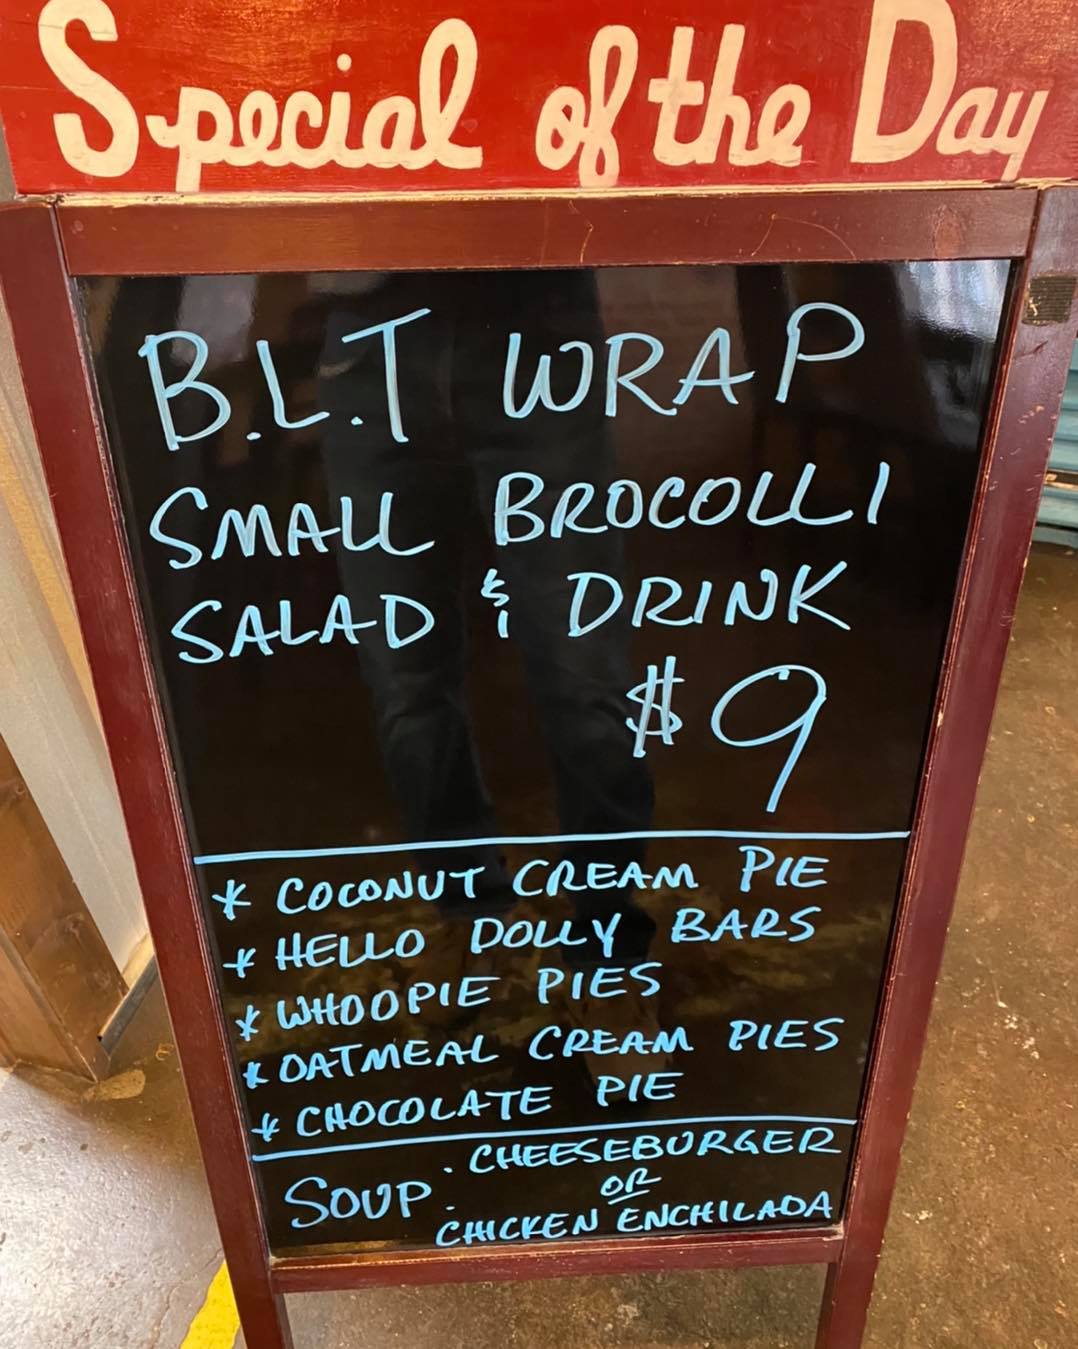 Special of the Day
B.L.T WRAP
SMALL BROCOLLI
SALAD & DRINK
$9
* COCONUT CREAM PIE
* HELLO DOLLY BARS
* WHOOPIE PIES
* OATMEAL CREAM PIES
* CHOCOLATE PIE
SOUP
. CHEESEBURGER
OR
. CHICKEN ENCHILADA